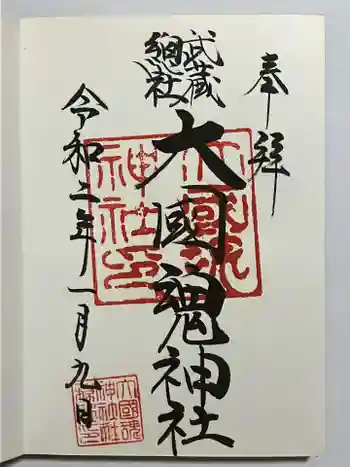 奉拝
武蔵
總社
大國魂神社
令和二年一月九日
大國魂
神社